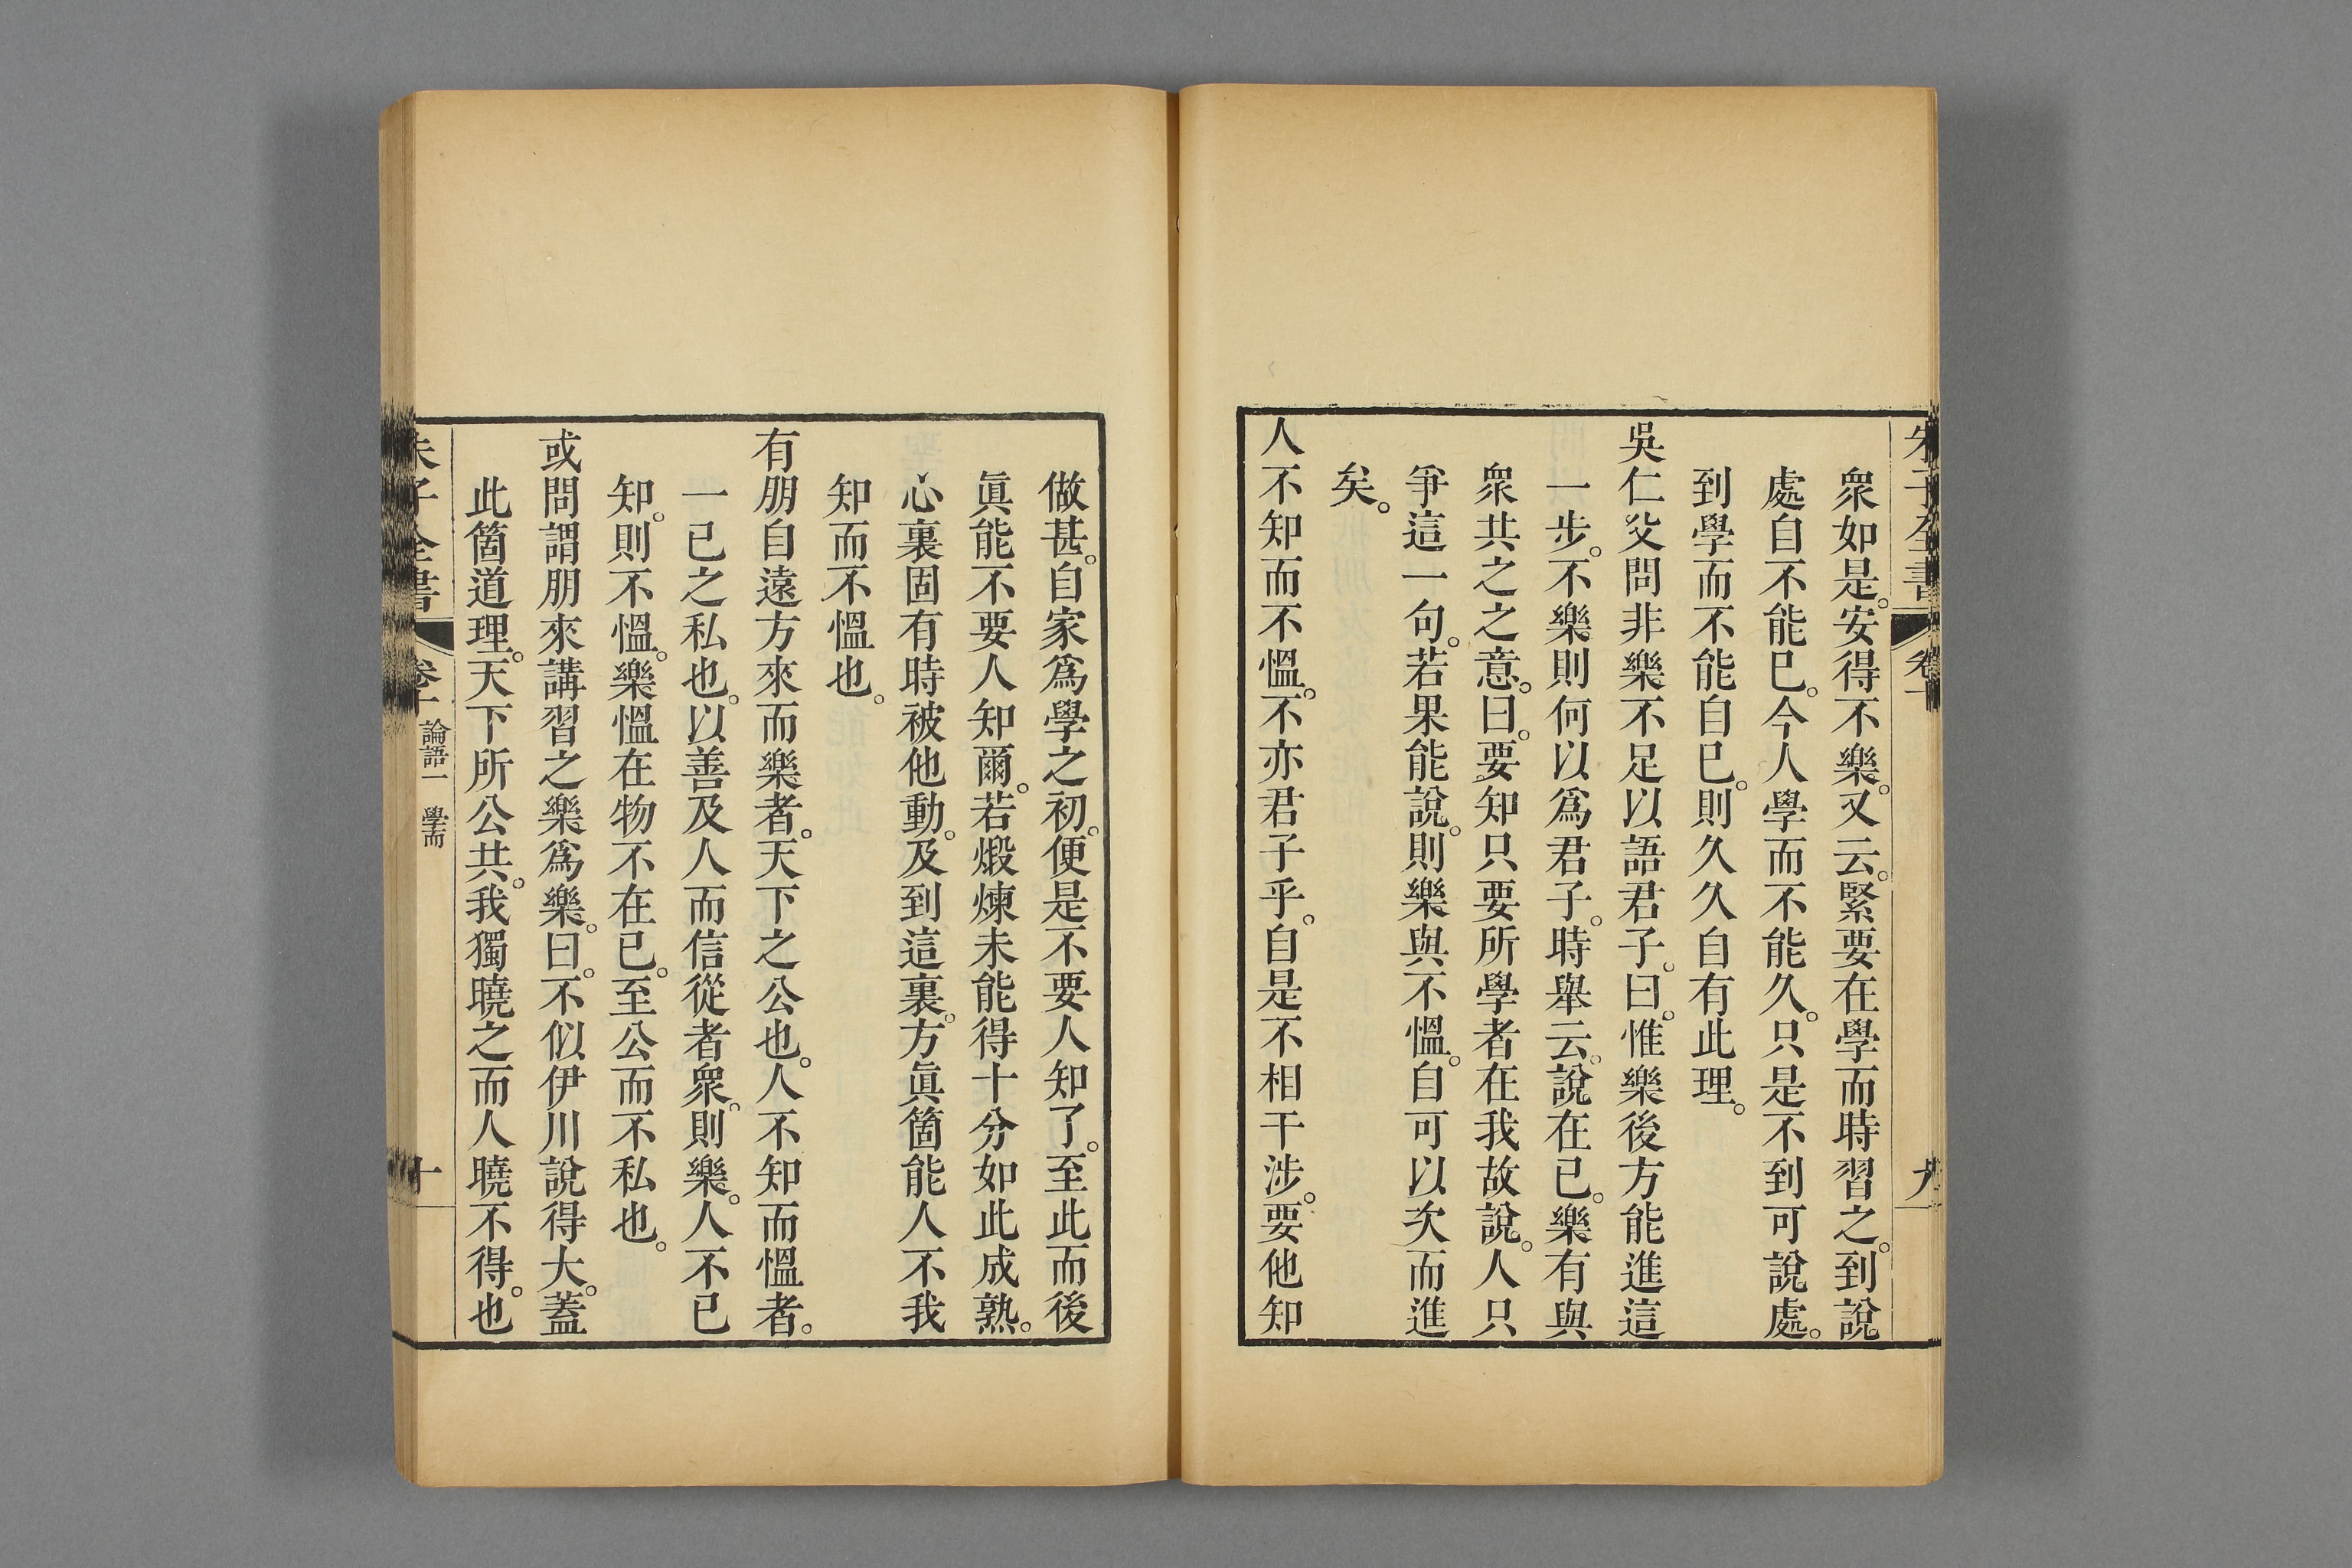 朱子全書 卷十 九
衆如是。安得不樂。又云。緊要在學而時習之。到說
處自不能已。今人學而不能久。只是不到可說處。
到學而不能自已。則久久自有此理。
吳仁父問非樂不足以語君子。曰。惟樂後方能進這
一步。不樂則何以爲君子。時舉云。說在已。樂有與
衆共之之意。曰。要知只要所學者在我故說。人只
爭這一句。若果能說。則樂與不慍。自可以次而進
矣。
人不知而不慍。不亦君子乎。自是不相干涉。要他知
做甚。自家爲學之初。便是不要人知了。至此而後
眞能不要人知爾。若煅煉未能得十分如此成熟。
心裏固有時被他動。及到這裏。方眞箇能人不我
知而不慍也。
有朋自遠方來而樂者。天下之公也。人不知而慍者。
一已之私也。以善及人而信從者衆。則樂。人不已
知。則不慍。樂慍在物不在已。至公而不私也。
或問謂朋來講習之樂爲樂。曰。不似伊川說得大。蓋
此箇道理。天下所公共。我獨曉之而人曉不得。也
朱子全書 卷十 論語一 學而 十